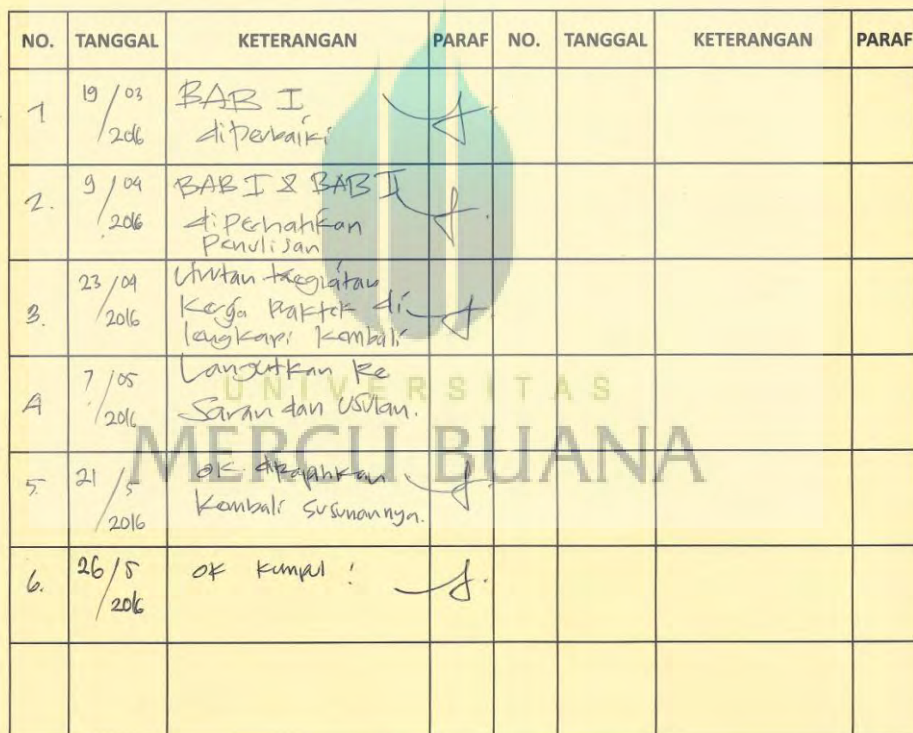 NO. TANGGAL KETERANGAN PARAF NO. TANGGAL KETERANGAN PARAF
1 19/03 2016 BAB I
diperbaiki
2. 9/04 2016 BAB I & BAB II
diperhatikan
Penulisan
3. 23/04 2016 Urutan kegiatan
Kerja Praktek di
lengkapi kembali
4 7/05 2016 Lanjutkan ke
Saran dan Usulan.
5. 21/5 2016 OK
Kembali susunannya.
6. 26/5 2016 OK Kumpul !
UNIVERSITAS
MERCU BUANA